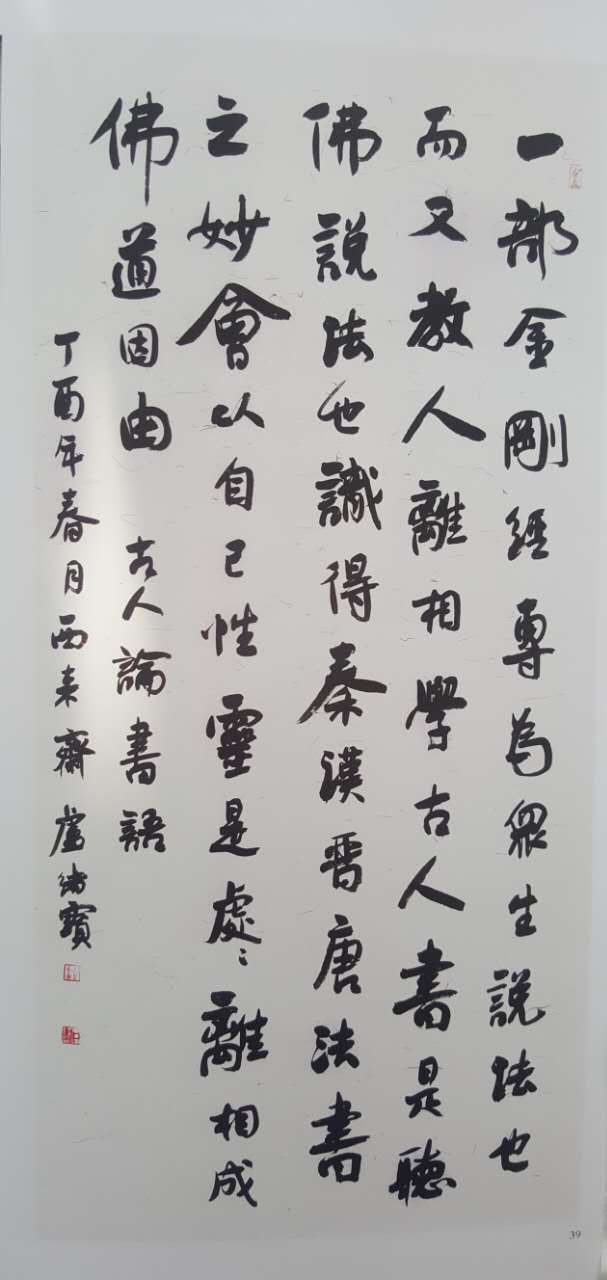 一部金剛經專為眾生說法也
而又教人離相學古人書是聽
佛說法也識得秦漢晋唐法書
之妙會以自己性靈是處〻離相成
佛道因由 古人論書語
丁酉年春月西来齋盧緒寶
39